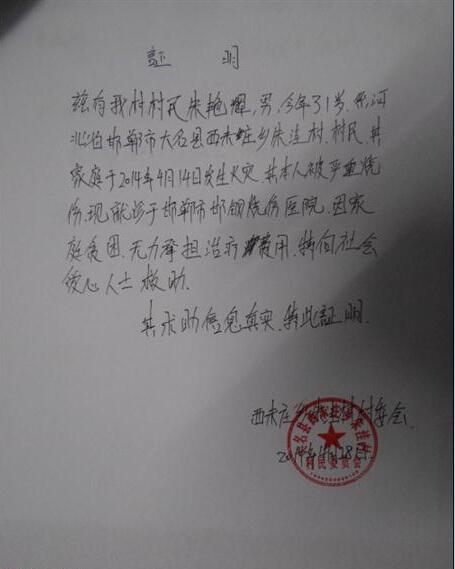 証 明
兹有我村村民朱艳耀,男,今年31岁,系河
北省邯郸市大名县西未庄乡朱洼村.村民.其
家庭于2014年4月14日发生火灾.其本人被严重烧
伤.现就诊于邯郸市邯钢烧伤医院.因家
庭贫困.无力承担治疗费用.特向社会
爱心人士救助.
其求助信息真实.特此証明.
西未庄乡朱洼村村委会
2014年4月28日
大名县西未庄乡朱洼村
村民委员会